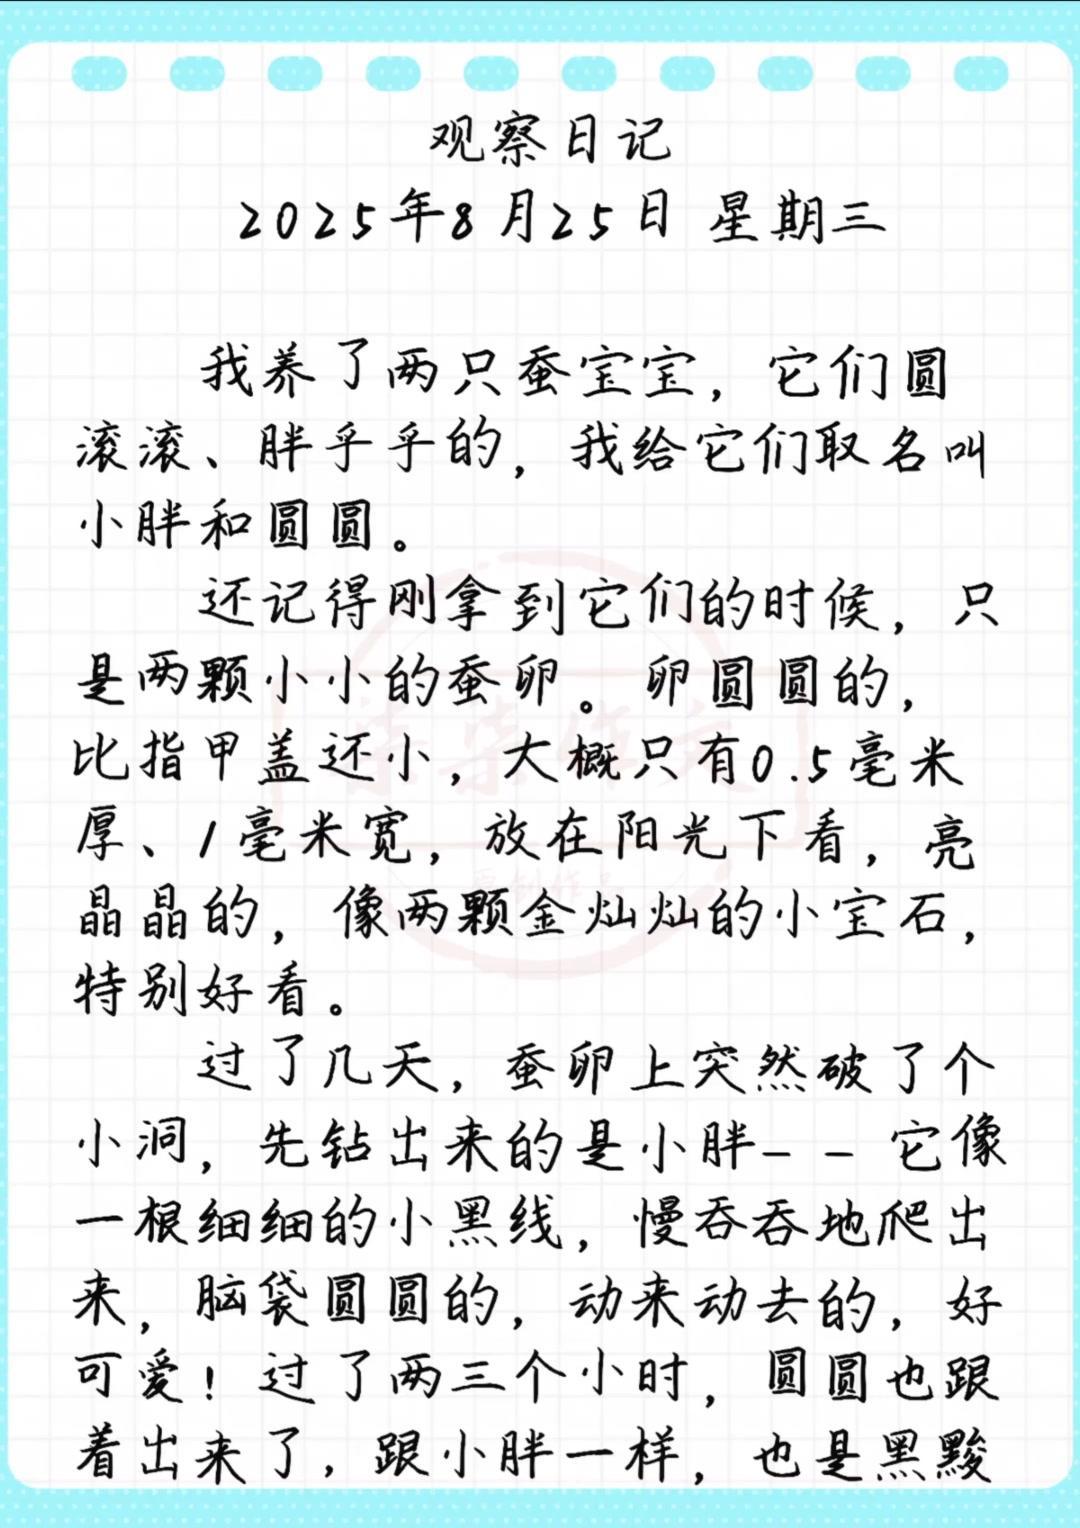 观察日记
2025年8月25日 星期三
我养了两只蚕宝宝，它们圆
滚滚、胖乎乎的，我给它们取名叫
小胖和圆圆。
还记得刚拿到它们的时候，只
是两颗小小的蚕卵。卵圆圆的，
比指甲盖还小，大概只有0.5毫米
厚、1毫米宽，放在阳光下看，亮
晶晶的，像两颗金灿灿的小宝石，
特别好看。
过了几天，蚕卵上突然破了个
小洞，先钻出来的是小胖--它像
一根细细的小黑线，慢吞吞地爬出
来，脑袋圆圆的，动来动去的，好
可爱！过了两三个小时，圆圆也跟
着出来了，跟小胖一样，也是黑黢
柒柒作文
原创作品